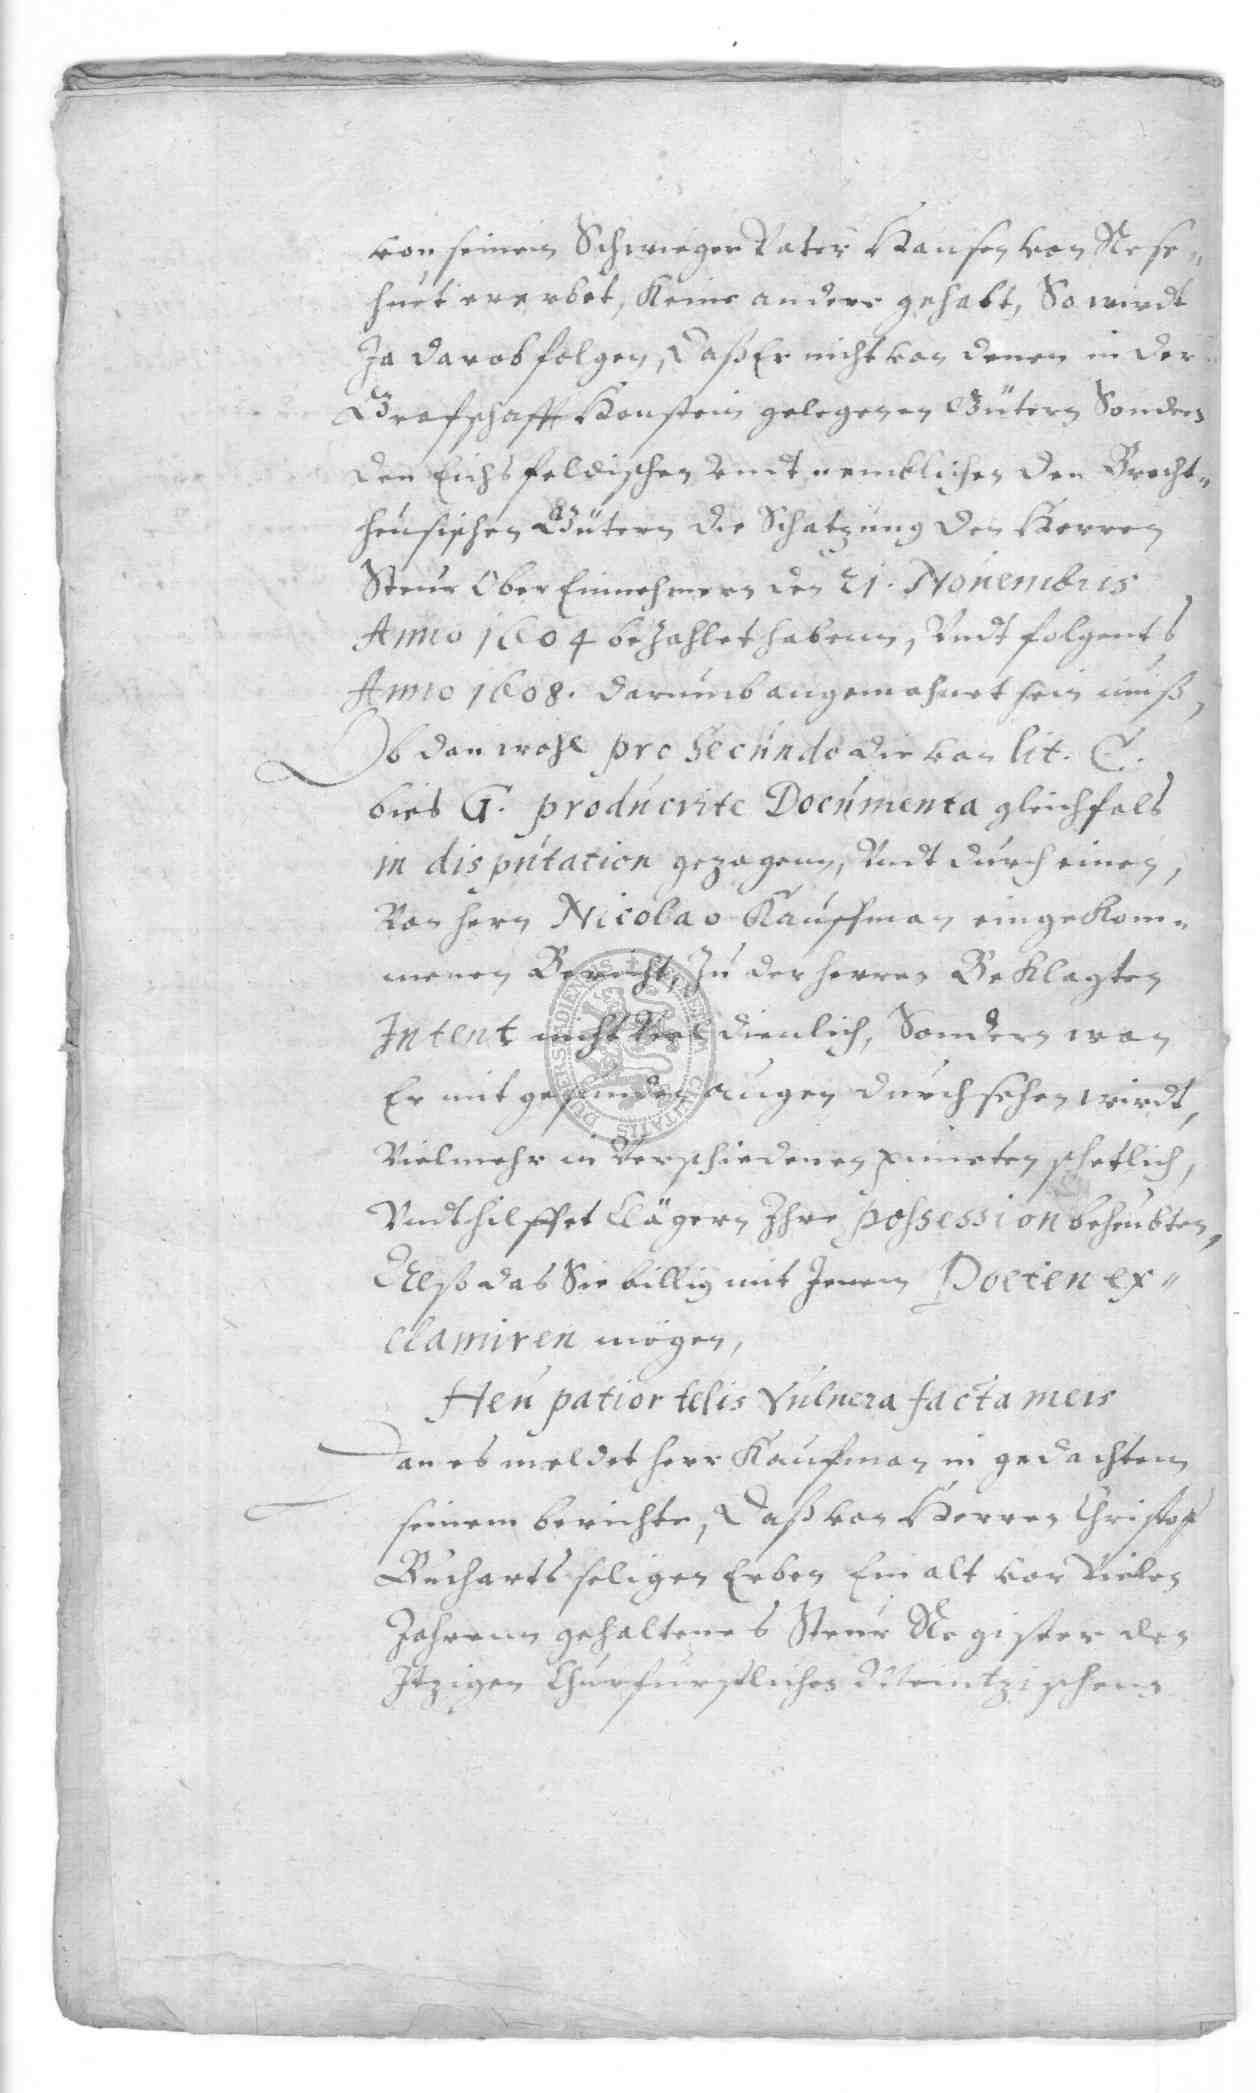 von seinem Schwieger Vater Hansen von Rese„
huet ererbet, Keine andere gehabt, So wirdt
Ja darob folgen, Daß Er nicht von denen in der
Grafschafft Honstein gelegenen Gütern Sondern
den Eichsfeldischen Undt nemblichen den Brecht„
heusischen Gütern die Schatzung den Herren
Steur Ober Einnehmern den 21. Novembris
Anno 1604 bezahlet habenn, Undt folgents
Anno 1608. darumb angemahnet sein muß,
Ob dan wohl pro secundo die von lit. C.
bies G. producirte Documenta gleichfals
in disputation gezogenn, Undt durch einen,
Von hern Nicolao Kauffman eingekom„
menen Bericht, Zu der herren Beklagten
Intent nicht Viel dienlich, Sondern wan
Er mit gesunden augen durchsehen wirdt,
Vielmehr in Verschiedenen puncten schetlich,
Undt hilffet Clägern Ihre possession beheubten,
Also das Sie billig mit Jenem Poeten ex„
clamiren mögen,
Heu patior telis Vulnera facta meis
Dan es meldet herr Kaufman in gedachtem
seinem berichte, Daß von Herren Christoff
Bucharts seligen Erben Ein alt vor Vielen
Jahrenn gehaltenes Steur Register den
Itzigen Churfurstlichen Meintzischenn